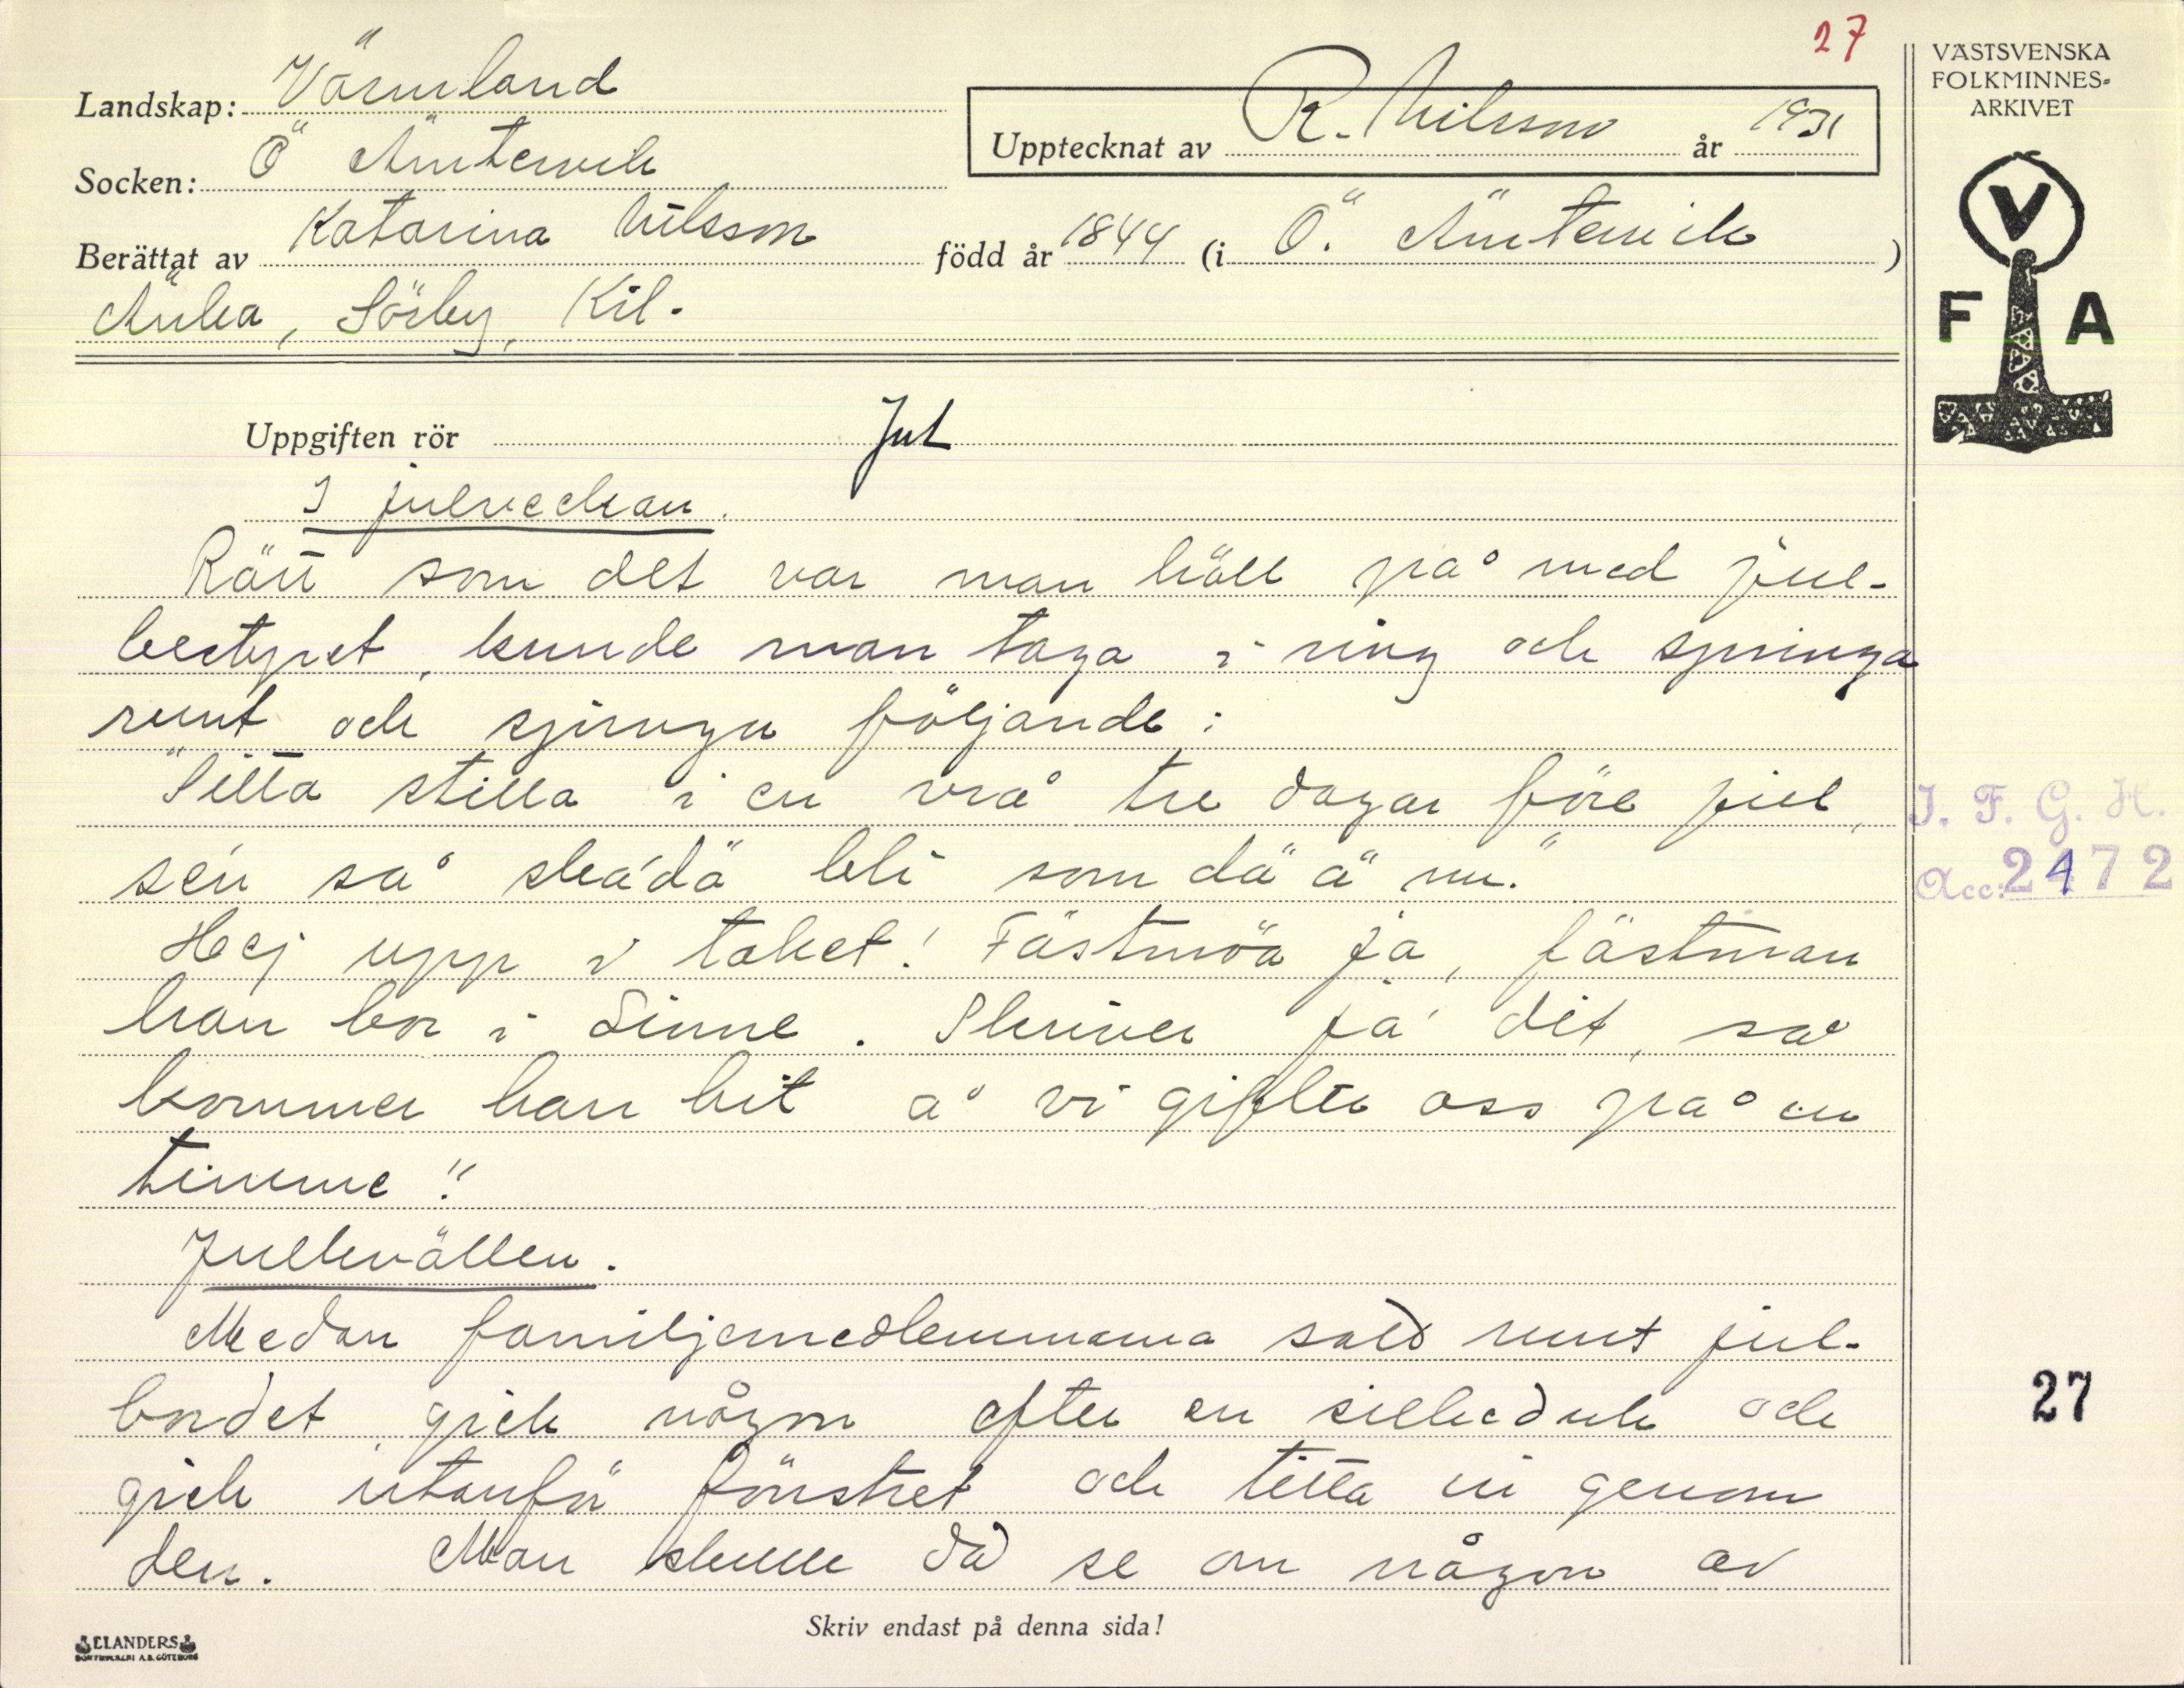 27
VÄSTSVENSKA
FOLKMINNES-
ARKIVET
Landskap: Värmland
Upptecknat av R. Nilsson år 1931
Socken: Ö Ämtervik
Berättat av Katarina Nilsson född år 1844 (i Ö. Ämtervik )
Änka, Sörby, Kil.
V
F A
Uppgiften rör Jul
I julveckan.
Rätt som det var man höll på med jul-
bestyret, kunde man taga i ring och springa
runt och sjunga följande:
"Sitta stilla i en vrå tre dagar före jul,
sén så ska'dä bli som dä ä nu."
Hej upp i taket! Fästmöa ja, fästman
han bor i Sunne. Skriver ja' dit, så
kommer han hit å vi gifter oss på en
timme!"
I. F. G. H.
Acc: 2472
Julkvällen.
Medan familjemedlemmarna satt runt jul-
bordet gick någon efter en silkeduk och
gick utanför fönstret och titta in genom
den. Man skulle då se om någon av
27
Skriv endast på denna sida!
ELANDERS
BOKTRYCKERI A.B. GÖTEBORG